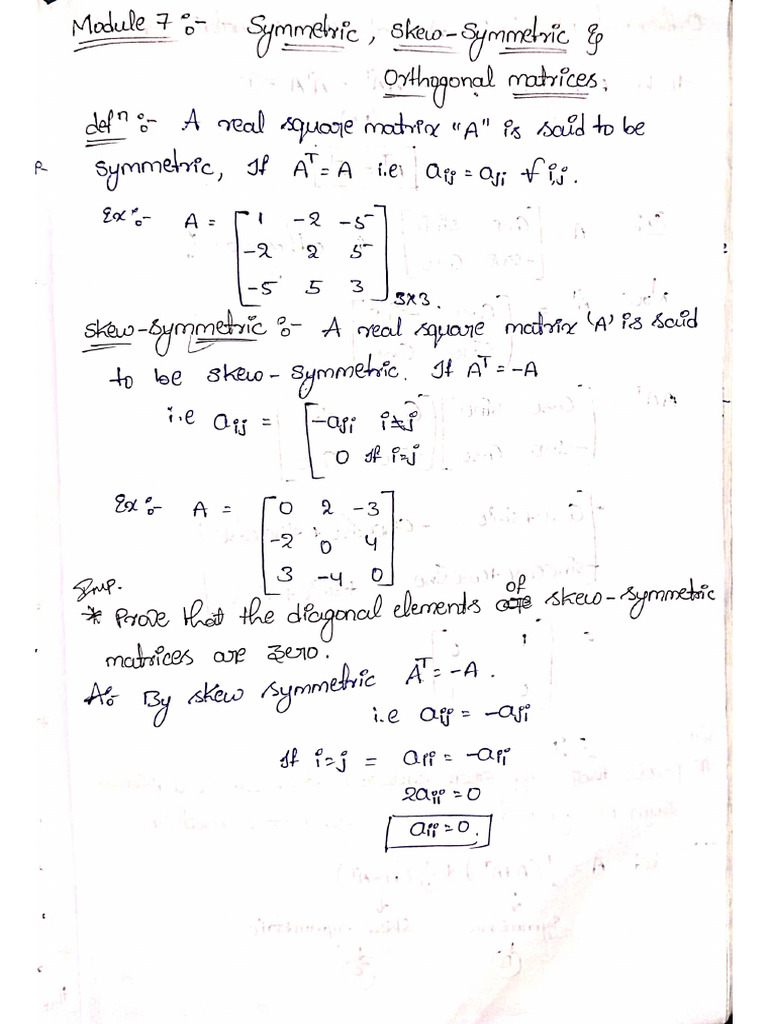 Module 7 :- Symmetric, Skew-Symmetric &
Orthogonal matrices;
defⁿ :- A real square matrix "A" is said to be
R
symmetric, If Aᵀ = A i.e aij = aji ∀ i,j.
Ex :- A = [ 1 -2 -5
-2 2 5
-5 5 3 ] 3x3.
skew-symmetric :- A real square matrix 'A' is said
to be skew-symmetric. If Aᵀ = -A
i.e aij = [ -aji i≠j
0 If i=j
Ex :- A = [ 0 2 -3
-2 0 4
3 -4 0 ]
Imp.
* Prove that the diagonal elements of skew-symmetric
matrices are zero.
A:- By skew symmetric Aᵀ = -A.
i.e aij = -aji
If i=j = aii = -aii
2aii = 0
aii = 0.